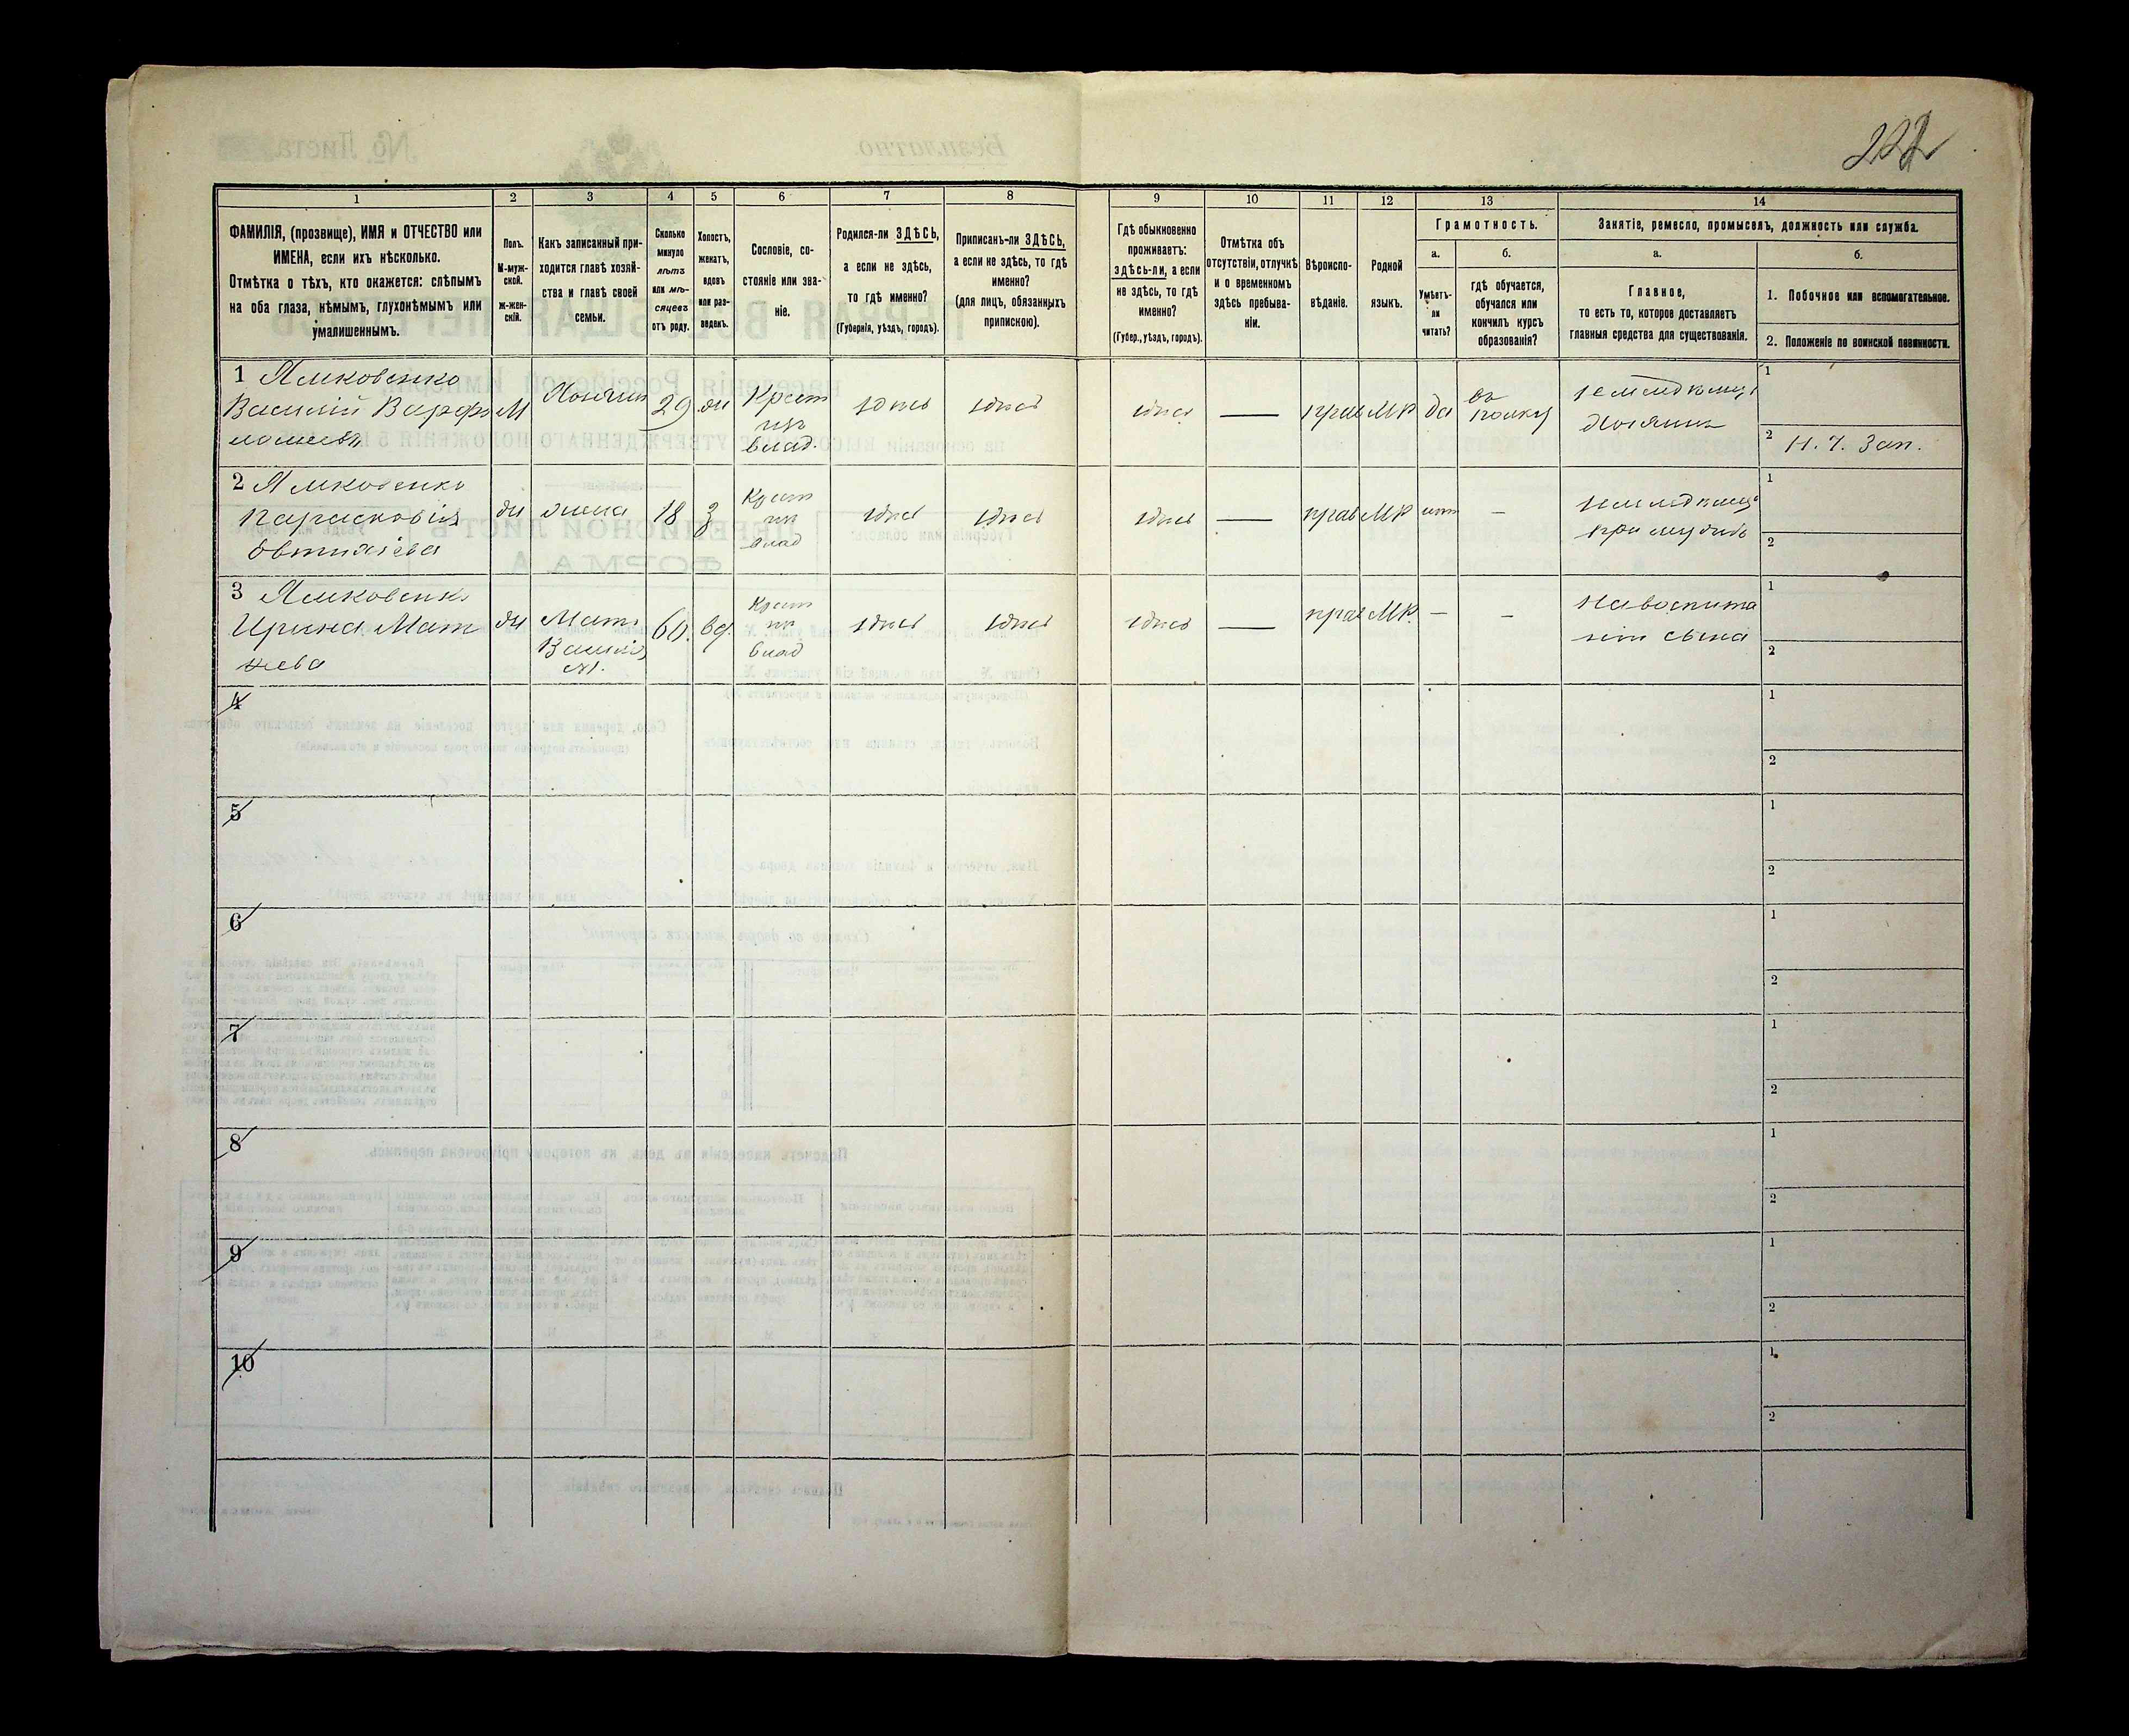 222
1
2
3
4
5
6
7
8
9
10
11
12
13
14
ФАМИЛІЯ, (прозвище), ИМЯ и ОТЧЕСТВО или
ИМЕНА, если ихъ нѣсколько.
Отмѣтка о тѣхъ, кто окажется: слѣпымъ
на оба глаза, нѣмымъ, глухонѣмымъ или
умалишеннымъ.
Полъ.
М-муж-
ской.
ж-жен-
скій.
Какъ записанный при-
ходится главѣ хозяй-
ства и главѣ своей
семьи.
Сколько
минуло
лѣтъ
или мѣ-
сяцевъ
отъ роду.
Холостъ,
женатъ,
вдовъ
или раз-
веденъ.
Сословіе, со-
стояніе или зва-
ніе.
Родился-ли ЗДѢСЬ,
а если не здѣсь,
то гдѣ именно?
(Губернія, уѣздъ, городъ).
Приписанъ-ли ЗДѢСЬ,
а если не здѣсь, то гдѣ
именно?
(для лицъ, обязанныхъ
припискою).
Гдѣ обыкновенно
проживаетъ:
здѣсь-ли, а если
не здѣсь, то гдѣ
именно?
(Губер., уѣздъ, городъ).
Отмѣтка объ
отсутствіи, отлучкѣ
и о временномъ
здѣсь пребыва-
ніи.
Вѣроиспо-
вѣданіе.
Родной
языкъ.
Грамотность.
а.
Умѣетъ-
ли
читать?
б.
гдѣ обучается,
обучался или
кончилъ курсъ
образованія?
Занятіе, ремесло, промыселъ, должность или служба.
а.
Главное,
то есть то, которое доставляетъ
главныя средства для существованія.
б.
1. Побочное или вспомогательное.
2. Положеніе по воинской повинности.
1 Ямковенко
Василій Варфо
ломеевъ
М
Хозяинъ
29
жн
Крест
изъ
влад.
здѣсь
здѣсь
здѣсь
—
прав
МР
да
въ
полку
Хозяинъ
1
2 Н. Ч. Зап.
2 Ямковенко
Парасковія
жн
жена
18
З
Крест
влад
здѣсь
здѣсь
здѣсь
—
прав
МР
нѣтъ
—
при мужѣ
1
2
3 Ямковенко
Ирина Мат
жн
Мать
60.
вд.
Крест
влад
здѣсь
здѣсь
здѣсь
—
прав
МР.
—
—
На воспита
ніи сына
1
2
4
1
2
5
1
2
6
1
2
7
1
2
8
1
2
9
1
2
10
1
2